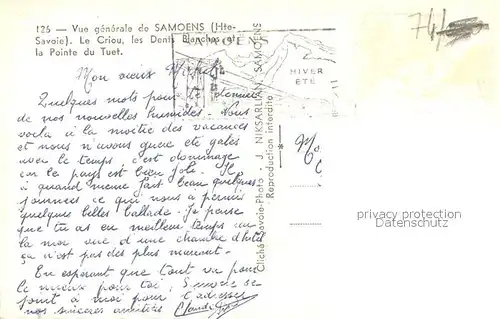 125 — Vue générale de SAMOENS (Hte-
Savoie). Le Criou, les Dents Blanches et
la Pointe du Tuet.
74
HIVER
ÉTÉ
Mon vieux Michel
Quelques mots pour te donner
de nos nouvelles humides. Nous
voila à la moitié des vacances
et nous n'avons guere eté gatés
avec le temps, c'est dommage
car le pays est bien joli. Il
a quand meme fait beau quelques
journees ce qui nous a permis
quelques belles ballade. Je pense
que tu as eu meilleur temps car
la mer vue d'une chambre d'hôtel
ça n'est pas des plus marrant.
En esperant que tout va pour
le mieux pour toi, Simone se
joint à moi pour t'adresser
nos sinceres amitiés Claude
Cliché Savoie-Photo - J. NIKSARLIAN, SAMOENS
Reproduction interdite
privacy protection
Datenschutz